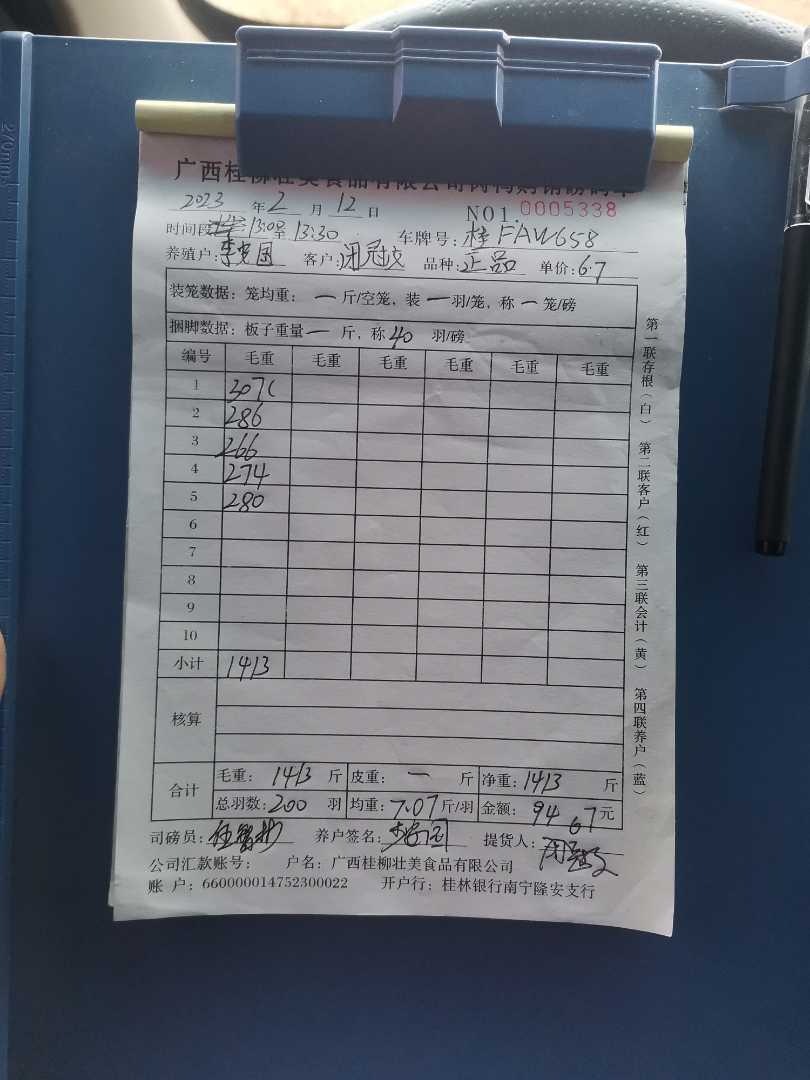 广西桂柳壮美食品有限公司肉鸭购销磅码单
2023 年 2 月 12 日 NO1.0005338
时间段 13:08 至 13:30 车牌号:桂FAW658
养殖户: 客户:闭冠文 品种:正品 单价:6.7
装笼数据:笼均重:一斤/空笼,装一羽/笼,称一笼/磅
捆脚数据:板子重量一斤,称40羽/磅
编号 毛重 毛重 毛重 毛重 毛重 毛重
1 307
2 286
3 266
4 274
5 280
6
7
8
9
10
小计 1413
核算
合计 毛重:1413斤 皮重:一斤 净重:1413斤
总羽数:200羽 均重:7.07斤/羽 金额:9467元
司磅员: 养户签名: 提货人:闭冠文
公司汇款账号: 户名:广西桂柳壮美食品有限公司
账 户:660000014752300022 开户行:桂林银行南宁隆安支行
第一联存根(白) 第二联客户(红) 第三联会计(黄) 第四联养户(蓝)
270mm